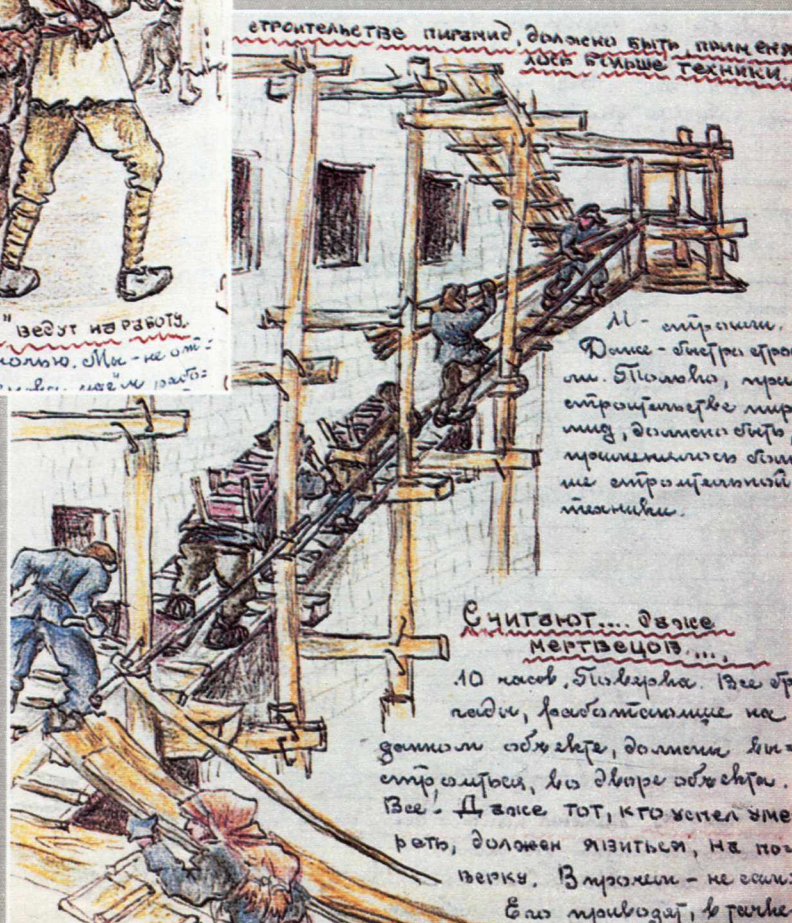 строительстве пирамид, должно быть, применя
лось больше техники.
" ведут на работу.
Мы - не от=
М - строили.
Даже - быстро стро
ли. Только, при
строительстве пира
мид, должно быть,
применялось боль
ше строительной
техники.
Считают.... даже
мертвецов....,
10 часов. Поверка. Все бри
гады, работающие на
данном объекте, должны вы=
строиться, во дворе объекта.
Все! Даже тот, кто успел уме
реть, должен явиться, на по
верку. Впрочем - не сам:
Его привозят, в тачке